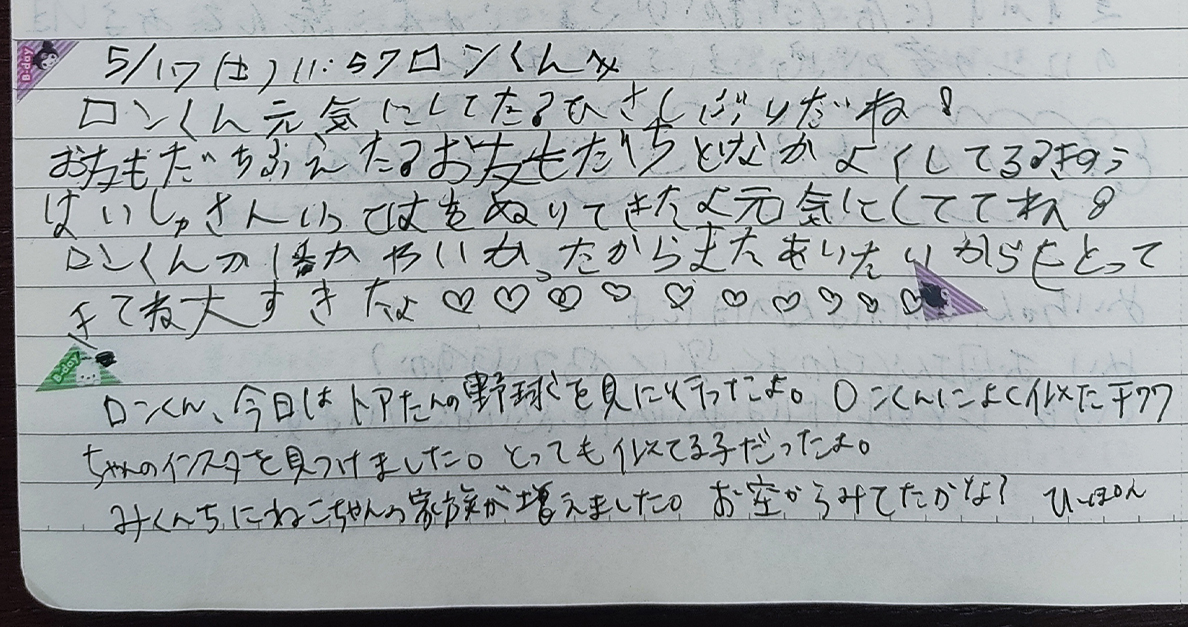 B-day
5/17(土)11:57ロンくんへ
ロンくん元気にしてた?ひさしぶりだね?
お友もだちふえたる?お友もだちとなかよくしてる?きのう
はいしゃさんいってはをぬりてきたよ元気にしててね?
ロンくんが1番かわいかったからまたあいたいからもどって
きてね大すきだよ♡♡♡♡♡♡♡♡♡♡
B-day
ロンくん、今日はトアたんの野球を見に行ったよ。ロンくんによく似たチワワ
ちゃんのインスタを見つけました。とっても似てる子だったよ。
みくんちにねこちゃんの家族が増えました。お空からみてたかな? ひーぽん